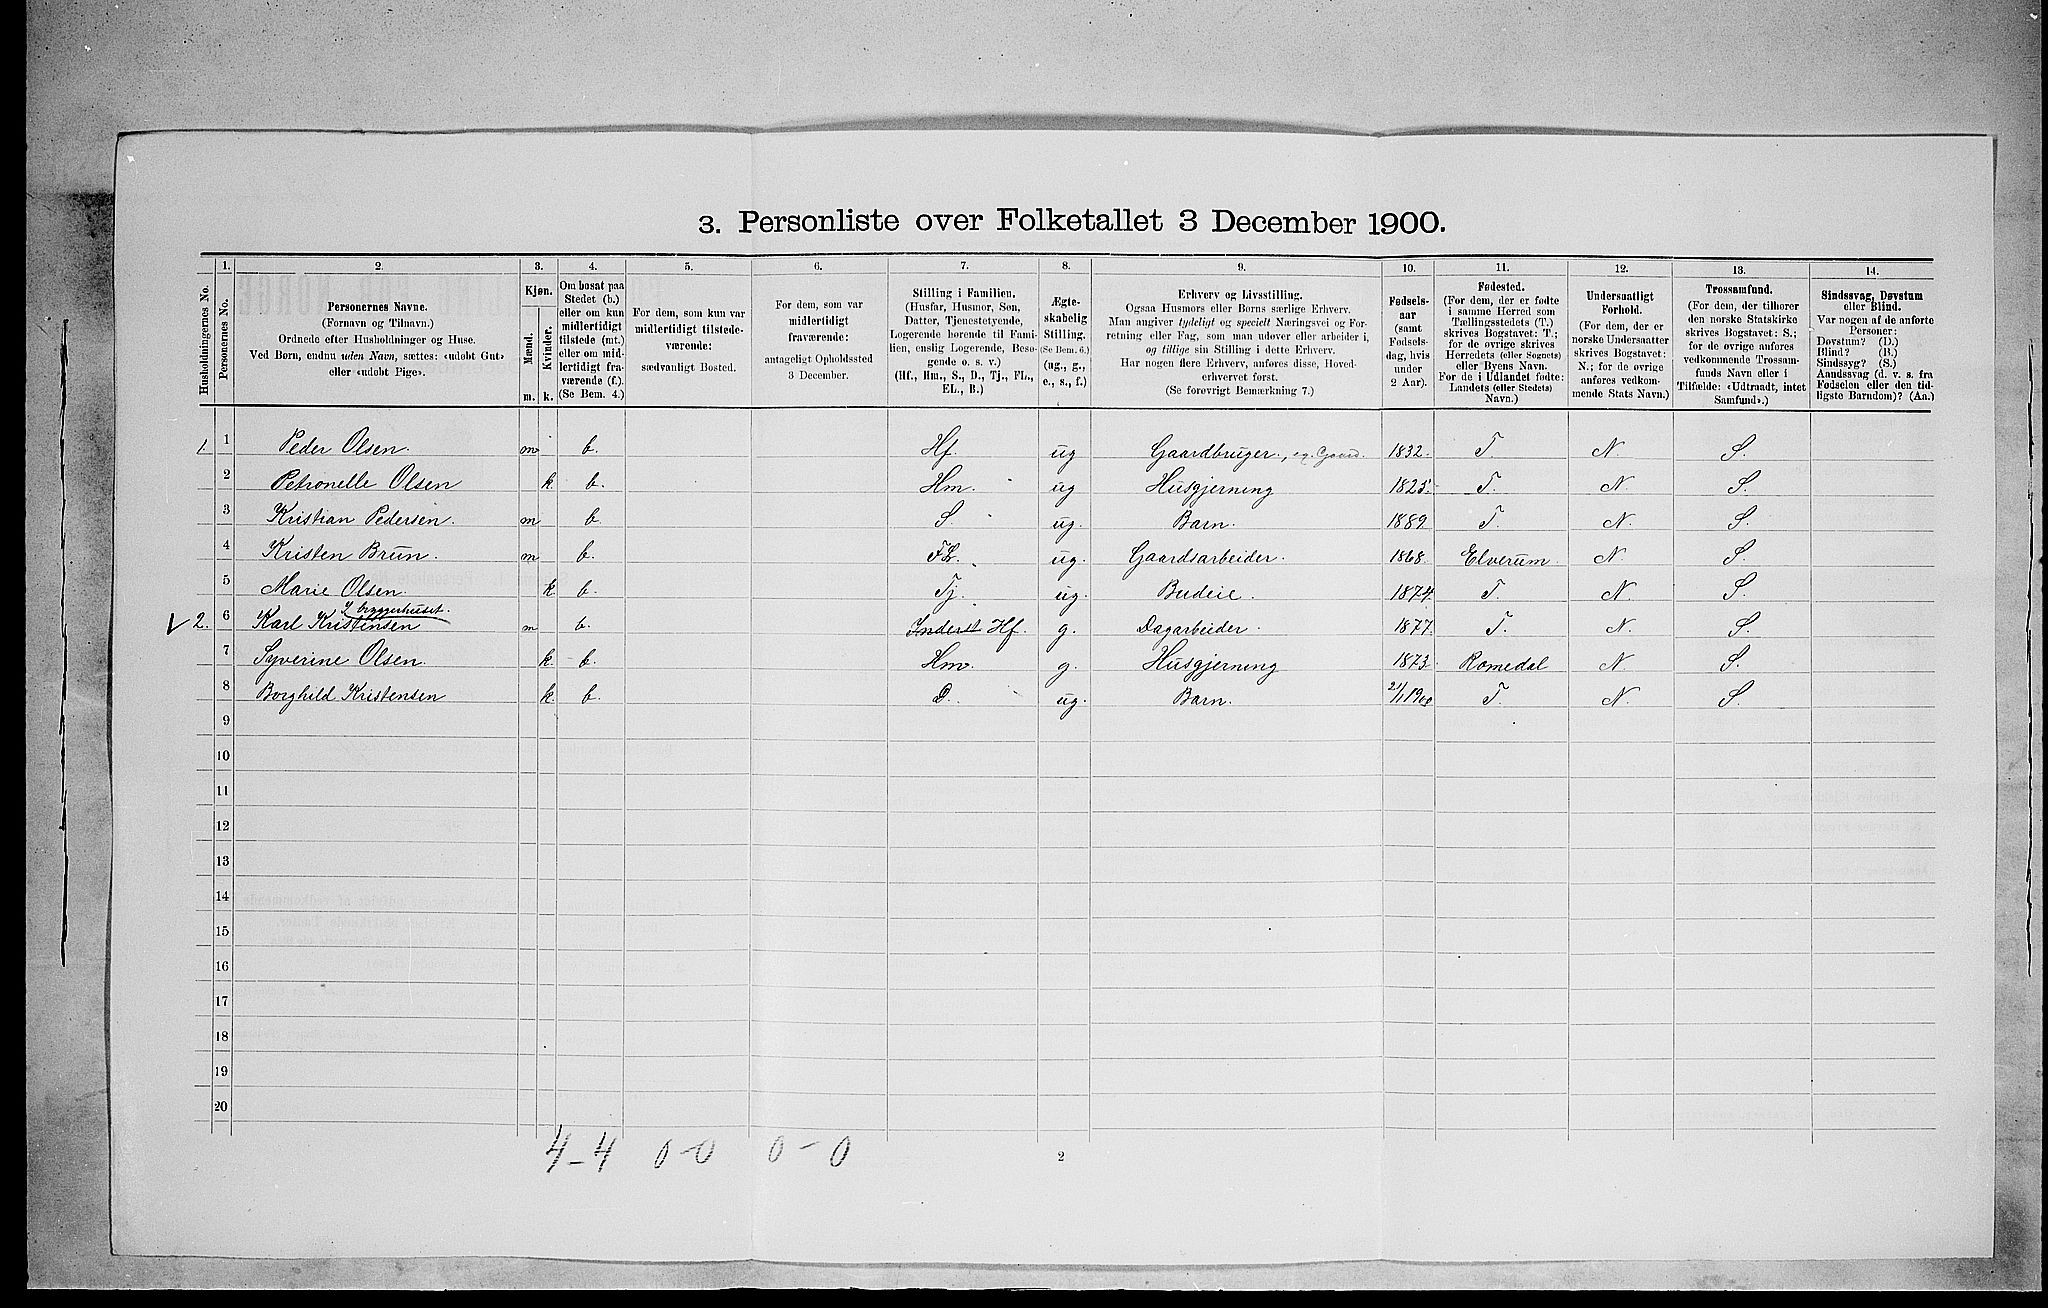 3. Personliste over Folketallet 3 December 1900.
Husholdningernes No.
1.
Personernes No.
2.
Personernes Navne.
(Fornavn og Tilnavn.)
Ordnede efter Husholdninger og Huse.
Ved Børn, endnu uden Navn, sættes: «udøbt Gut»
eller «udøbt Pige».
3.
Kjøn.
Mænd.
Kvinder.
m. k.
4.
Om bosat paa
Stedet (b.)
eller om kun
midlertidigt
tilstede (mt.)
eller om mid-
lertidigt fra-
værende (f.).
(Se Bem. 4.)
5.
For dem, som kun var
midlertidigt tilstede-
værende:
sædvanligt Bosted.
6.
For dem, som var
midlertidigt
fraværende:
antageligt Opholdssted
3 December.
7.
Stilling i Familien.
(Husfar, Husmor, Søn,
Datter, Tjenestetyende,
Logerende hørende til Fami-
lien, enslig Logerende, Besø-
gende o. s. v.)
(Hf., Hm., S., D., Tj., FL.,
EL., B.)
8.
Ægte-
skabelig
Stilling.
(Se Bem. 6.)
(ug., g.,
e., s., f.)
9.
Erhverv og Livsstilling.
Ogsaa Husmors eller Børns særlige Erhverv.
Man angiver tydeligt og specielt Næringsvei og For-
retning eller Fag, som man udøver eller arbeider i,
og tillige sin Stilling i dette Erhverv.
Har nogen flere Erhverv, anføres disse, Hoved-
erhvervet først.
(Se forøvrigt Bemærkning 7.)
10.
Fødsels-
aar
(samt
Fødsels-
dag, hvis
under
2 Aar).
11.
Fødested.
(For dem, der er fødte
i samme Herred som
Tællingsstedets (T.)
skrives Bogstavet: T.;
for de øvrige skrives
Herredets (eller Sognets)
eller Byens Navn.
For de i Udlandet fødte:
Landets (eller Stedets)
Navn.)
12.
Undersaatligt
Forhold.
(For dem, der er
norske Undersaatter
skrives Bogstavet:
N.; for de øvrige
anføres vedkom-
mende Stats Navn.)
13.
Trossamfund.
(For dem, der tilhører
den norske Statskirke
skrives Bogstavet: S.;
for de øvrige anføres
vedkommende Trossam-
funds Navn eller i
Tilfælde: «Udtraadt, intet
Samfund».)
14.
Sindssvag, Døvstum
eller Blind.
Var nogen af de anførte
Personer:
Døvstum? (D.)
Blind? (B.)
Sindssyg? (S.)
Aandssvag (d. v. s. fra
Fødselen eller den tid-
ligste Barndom)? (Aa.)
1. 1 Peder Olsen. m b. Hf. ug Gaardbruger, eg. Gaard. 1832. T N. S.
2 Petronelle Olsen k. b. Hm. ug Husgjerning 1825. T. N S.
3 Kristian Pedersen. m b. S. ug. Barn. 1889 T. N. S.
4 Kristen Brun. m b. FL. ug. Gaardsarbeider. 1868. Elverum. N S.
5 Marie Olsen. k b. Tj. ug. Budeie. 1874. T. N. S.
I bryggerhuset.
V 2. 6 Karl Kristensen m b. Inderst Hf. g. Dagarbeider. 1877. T. N. S.
7 Syverine Olsen. k. b. Hm. g. Husgjerning 1873. Romedal N S.
8 Borghild Kristensen k. b. D. ug. Barn. 21/1 1900 T. N. S.
9
10
11
12
13
14
15
16
17
18
19
20
4-4 0-0 0-0
2